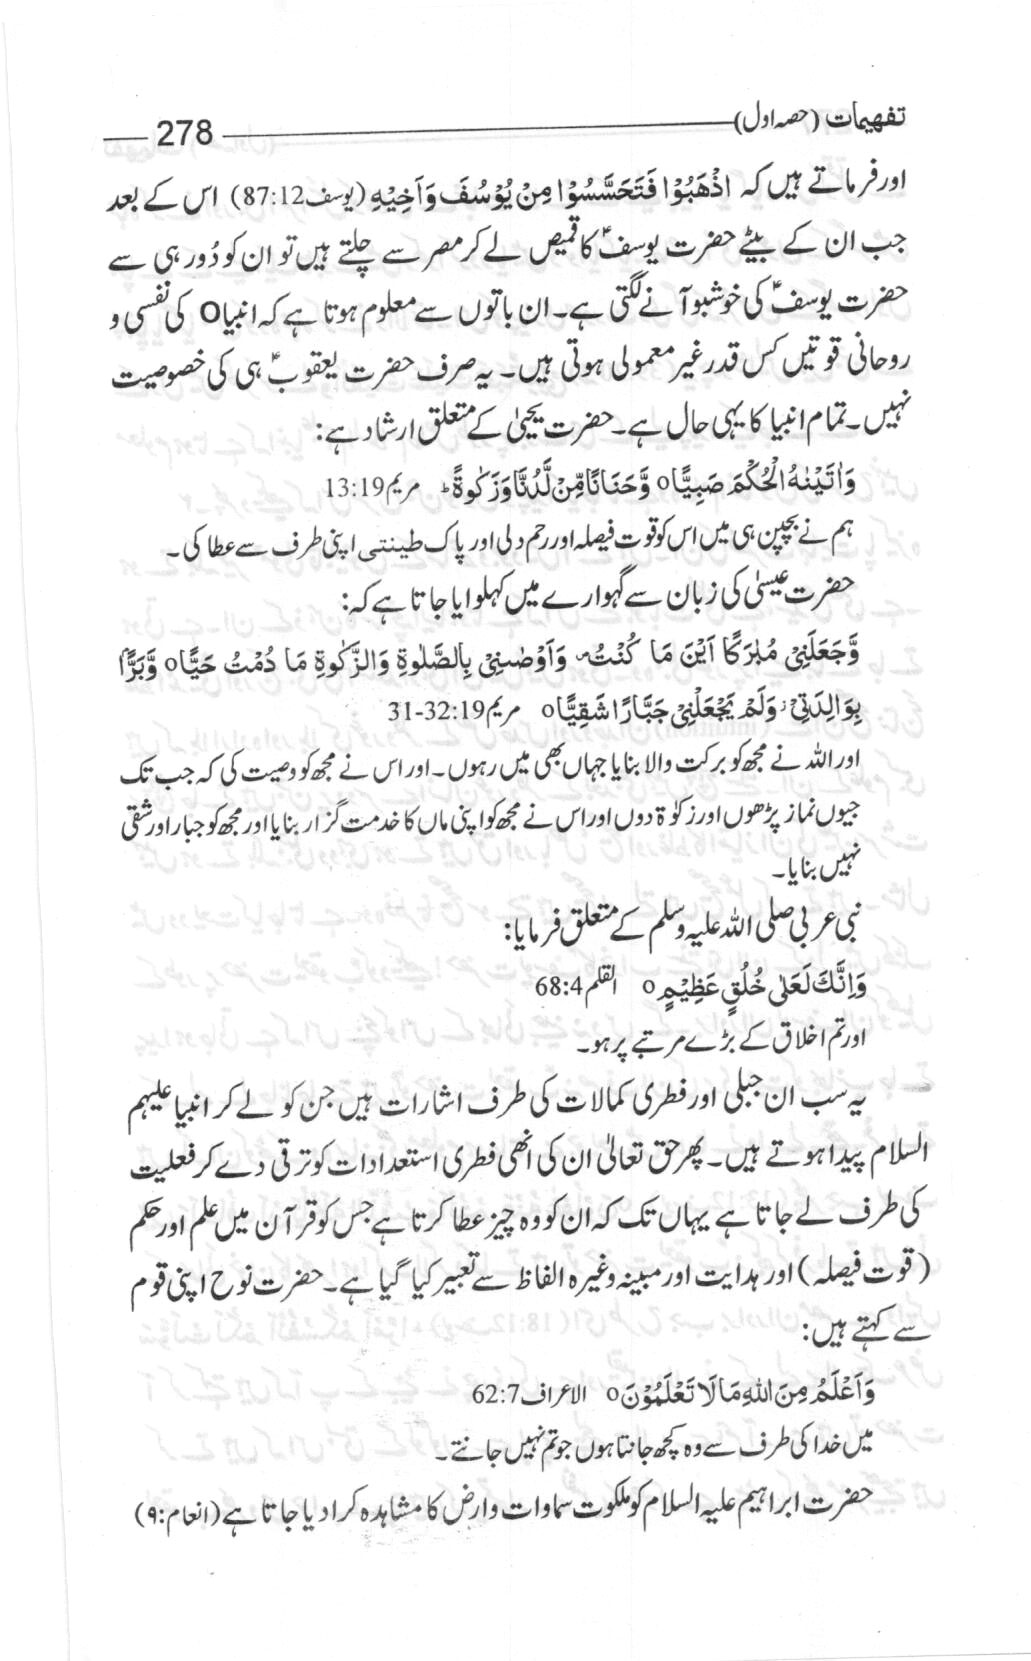 تفہیمات (حصہ اول) 278
اور فرماتے ہیں کہ اذْهَبُوْا فَتَحَسَّسُوْا مِنْ يُوْسُفَ وَاَخِيْهِ (یوسف 87:12) اس کے بعد
جب ان کے بیٹے حضرت یوسفؑ کا قمیص لے کر مصر سے چلتے ہیں تو ان کو دُور ہی سے
حضرت یوسفؑ کی خوشبو آنے لگتی ہے۔ ان باتوں سے معلوم ہوتا ہے کہ انبیاo کی نفسی و
روحانی قوتیں کس قدر غیر معمولی ہوتی ہیں۔ یہ صرف حضرت یعقوبؑ ہی کی خصوصیت
نہیں۔ تمام انبیا کا یہی حال ہے۔ حضرت یحییٰ کے متعلق ارشاد ہے:
وَاٰتَيْنٰهُ الْحُكْمَ صَبِيًّا o وَّحَنَانًا مِّنْ لَّدُنَّا وَزَكٰوةً ؕ مریم 13:19
ہم نے بچپن ہی میں اس کو قوت فیصلہ اور رحم دلی اور پاک طینتی اپنی طرف سے عطا کی۔
حضرت عیسیٰ کی زبان سے گہوارے میں کہلوایا جاتا ہے کہ:
وَّجَعَلَنِيْ مُبٰرَكًا اَيْنَ مَا كُنْتُ ۪ وَاَوْصٰنِيْ بِالصَّلٰوةِ وَالزَّكٰوةِ مَا دُمْتُ حَيًّا o وَّبَرًّۢا
بِوَالِدَتِيْ ۡ وَلَمْ يَجْعَلْنِيْ جَبَّارًا شَقِيًّا o مریم 31-32:19
اور اللہ نے مجھ کو برکت والا بنایا جہاں بھی میں رہوں۔ اور اس نے مجھ کو وصیت کی کہ جب تک
جیوں نماز پڑھوں اور زکوٰۃ دوں اور اس نے مجھ کو اپنی ماں کا خدمت گزار بنایا اور مجھ کو جبار اور شقی
نہیں بنایا۔
نبی عربی صلی اللہ علیہ وسلم کے متعلق فرمایا:
وَاِنَّكَ لَعَلٰى خُلُقٍ عَظِيْمٍ o القلم 68:4
اور تم اخلاق کے بڑے مرتبے پر ہو۔
یہ سب ان جبلی اور فطری کمالات کی طرف اشارات ہیں جن کو لے کر انبیا علیہم
السلام پیدا ہوتے ہیں۔ پھر حق تعالیٰ ان کی انھی فطری استعدادات کو ترقی دے کر فعلیت
کی طرف لے جاتا ہے یہاں تک کہ ان کو وہ چیز عطا کرتا ہے جس کو قرآن میں علم اور حکم
(قوت فیصلہ) اور ہدایت اور مبینہ وغیرہ الفاظ سے تعبیر کیا گیا ہے۔ حضرت نوح اپنی قوم
سے کہتے ہیں:
وَاَعْلَمُ مِنَ اللّٰهِ مَا لَا تَعْلَمُوْنَ o الاعراف 62:7
میں خدا کی طرف سے وہ کچھ جانتا ہوں جو تم نہیں جانتے۔
حضرت ابراہیم علیہ السلام کو ملکوت سماوات وارض کا مشاہدہ کرا دیا جاتا ہے (انعام: ۹)